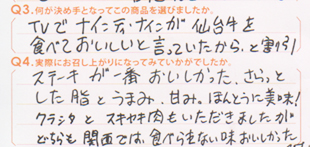 Q3.何が決め手となってこの商品を選びましたか。
TVでナインティナインが仙台牛を
食べておいしいと言っていたから、と割引!
Q4.実際にお召し上がりになってみていかがでしたか。
ステーキが一番おいしかった。さらっと
した脂とうまみ、甘み。ほんとうに美味!
クラシタとスキヤキ肉もいただきましたが
どちらも関西では、食べられない味おいしかった